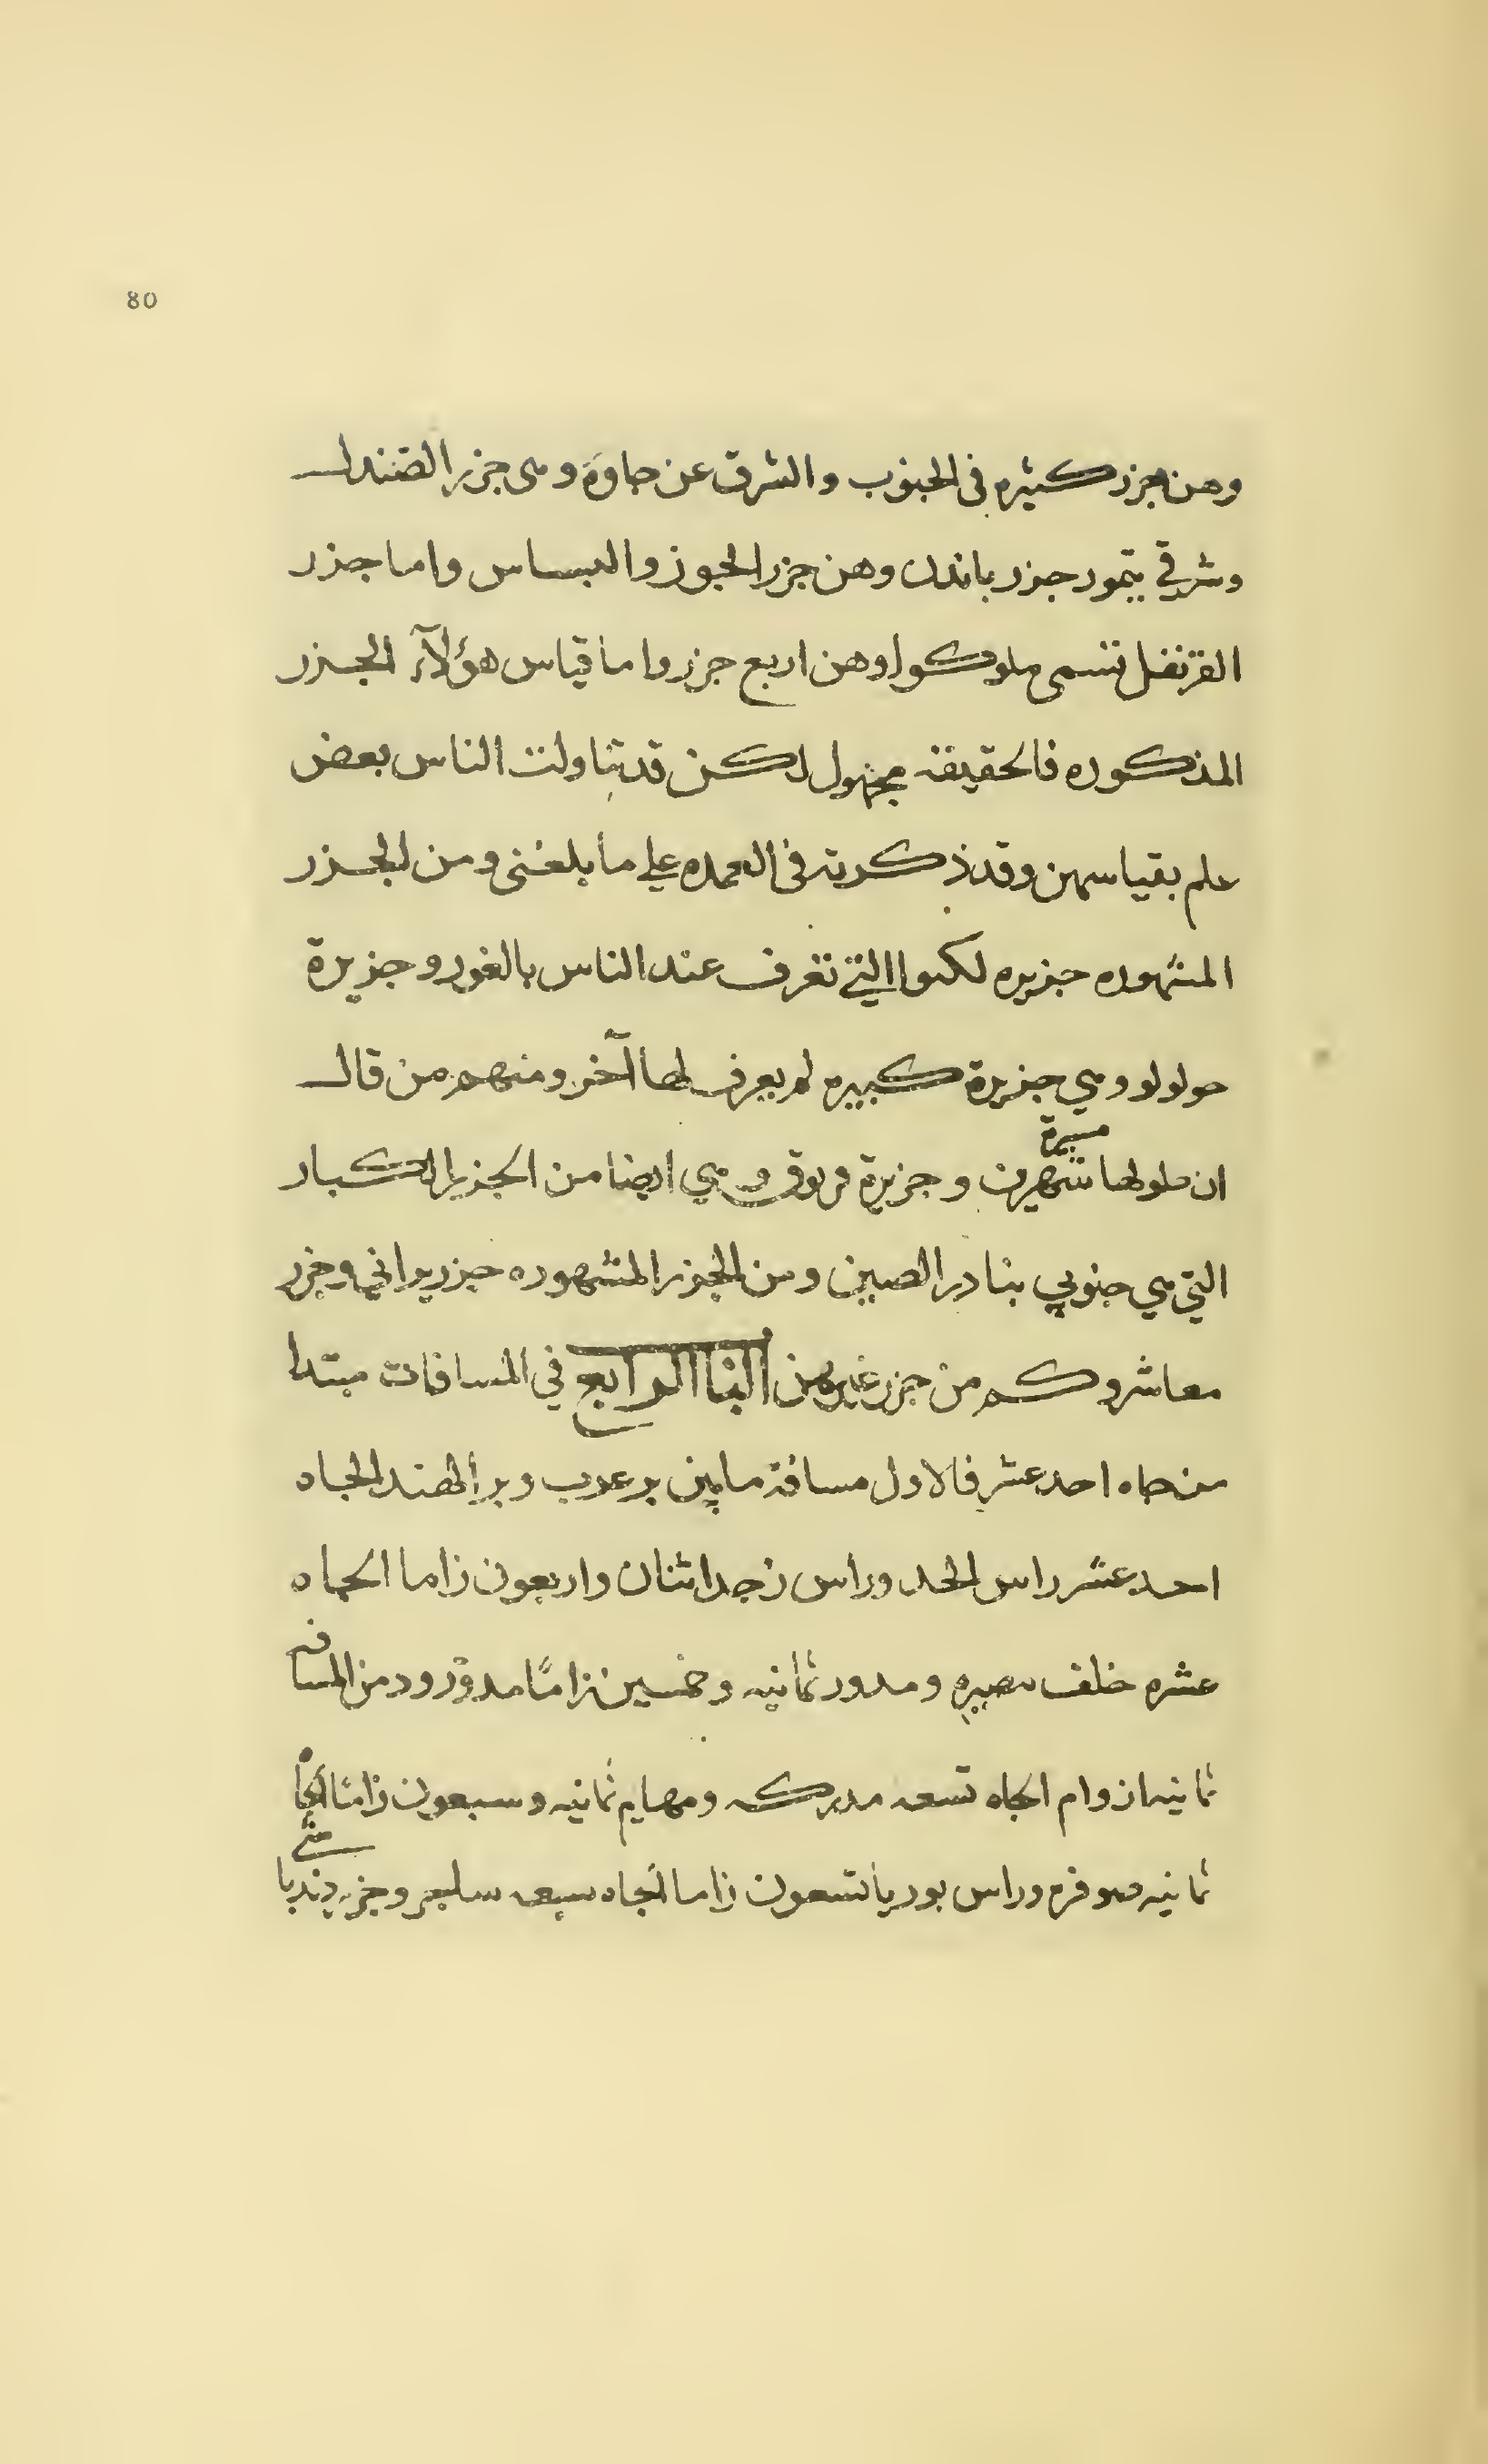 80
وهن جزر كثيره في الجنوب والشرق عن جاوة وهي جزر الصندل
وشرقي تيمور جزر باندن وهن جزر الجوز والبسباس واما جزر
القرنفل تسمى ملوكوا وهن اربع جزر واما قياس هؤلآء الجزر
المذكوره فالحقيقه مجهول لكن قد تناولت الناس بعض
علم بقياسهن وقد ذكرته في العمده علي ما بلغني ومن الجزر
المشهوره جزيره لكىوا التي تعرف عند الناس بالغور وجزيرة
حولولو وهي جزيرة كبيره لم يعرف لها آخر ومنهم من قال
ان طولها مسيرة شهرين وجزيرة فريوق وهي ايضا من الجزر الكبار
التي هي جنوبي بنادر الصين ومن الجزر المشهوره جزر براني وجزر
معاشر وكم من جزر غيرهن الباب الرابع في المسافات مبتدا
من جاه احد عشر فالاول مسافة ما بين بر عرب وبر الهند الجاه
احد عشر راس الحد وراس زجد اثنان واربعون زاما الجاه
عشره خلف مصيره ومدور ثمانيه وخمسين زامًا مدور ود من المسافه
ثمانيه ازوام الجاه تسعه مدركه ومهايم ثمانيه وسبعون زامًا الجاه
ثمانيه صوقره وراس بوريا تسعون زاما الجاه سبعه ساجر وجزر دندباشي